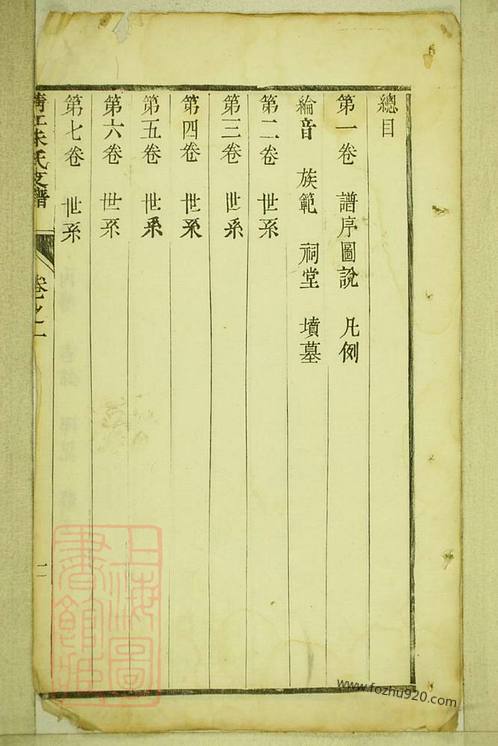 總目
第一卷 譜序圖說 凡例
綸音 族範 祠堂 墳墓
第二卷 世系
第三卷 世系
第四卷 世系
第五卷 世系
第六卷 世系
第七卷 世系
朱氏支譜
卷之一
上海圖書館藏
www.fozhu920.com